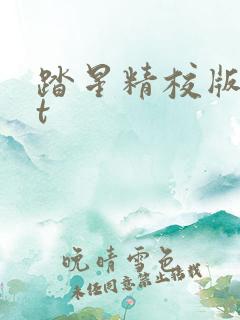 踏星精校版
t
晚晴雪色
未经同意禁止转载